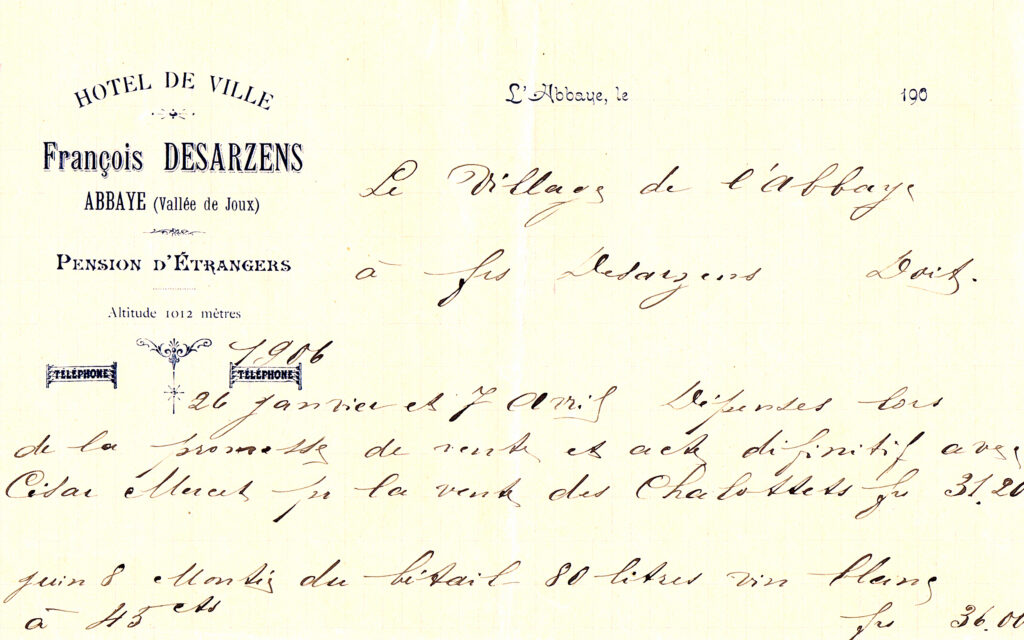 HOTEL DE VILLE
François DESARZENS
ABBAYE (Vallée de Joux)
PENSION D'ÉTRANGERS
Altitude 1012 mètres
TÉLÉPHONE
TÉLÉPHONE
L'Abbaye, le 190
Le Village de l'Abbaye
à frs Desarzens Doit.
1906
26 janvier et 7 Avril Dépenses lors
de la promesse de vente et acte définitif avec
César Mercet pr la vente des Chalottets frs 31.20
juin 8 Montée du bétail 80 litres vin blanc
à 45 cts frs 36.00